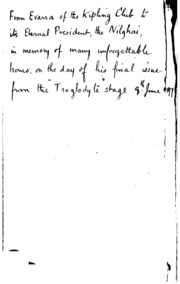 From Evarra of the Kipling Club to
its Eternal President, the Nilghai,
in memory of many unforgettable
hours, on the day of his final
from the "Troglodyte" stage 9th June